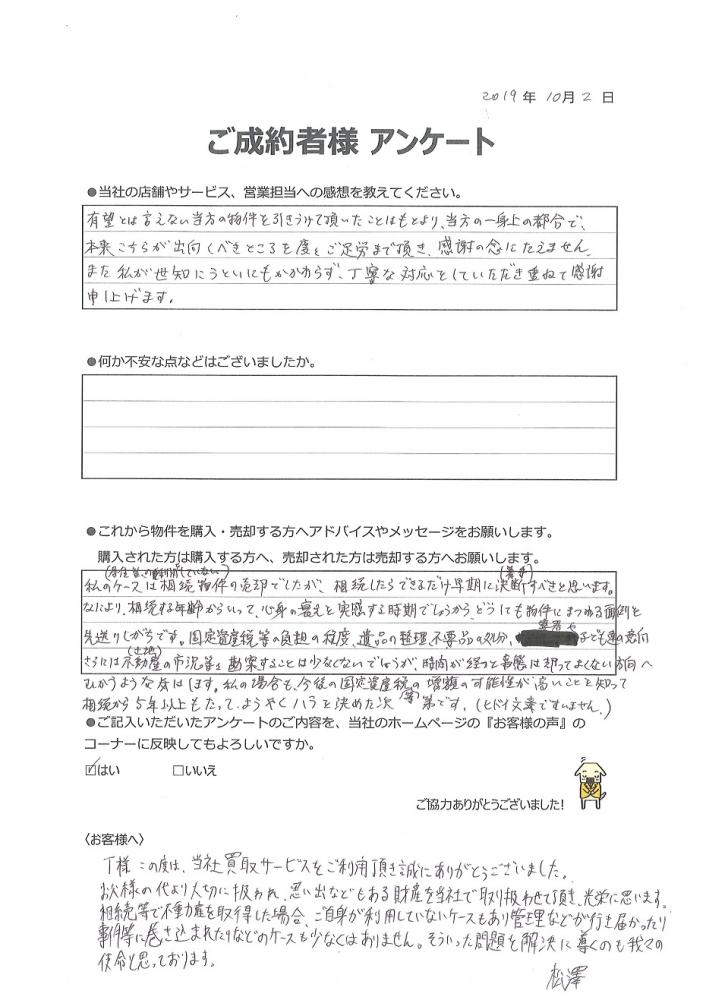 2019年 10月 2日
ご成約者様 アンケート
●当社の店舗やサービス、営業担当への感想を教えてください。
有望とは言えない当方の物件を引きうけて頂いたことはもとより、当方の一身上の都合で、
本来こちらが出向くべきところを度々ご足労まで頂き、感謝の念にたえません。
また私が世知にうといにもかかわらず、丁寧な対応をしていただき重ねて感謝
申し上げます。
●何か不安な点などはございましたか。
●これから物件を購入・売却する方へアドバイスやメッセージをお願いします。
購入された方は購入する方へ、売却された方は売却する方へお願いします。
私のケースは相続物件の売却でしたが、相続したらできるだけ早期に決断すべきと思います。
なにより、相続する年齢からいって、心身の衰えを実感する時期でしょうから、どうにも物件にまつわる面倒を
先送りしがちです。固定資産税等の負担の程度、遺品の整理、不要品の処分、
さらには(土地)不動産の市況等を勘案することは少なくないでしょうが、時間が経つと事態は却ってよくない方向へ
むかうような気はします。私の場合も、今後の固定資産税の増額の可能性が高いことを知って
相続から5年以上もたって、ようやくハラを決めた次第です。(ヒドイ文章ですいません。)
●ご記入いただいたアンケートのご内容を、当社のホームページの『お客様の声』の
コーナーに反映してもよろしいですか。
☑はい □いいえ
ご協力ありがとうございました!
〈お客様へ〉
T様 この度は、当社買取サービスをご利用頂き誠にありがとうございました。
お父様の代より大切に扱われ、思い出などもある財産を当社で取り扱わせて頂き、光栄に思います。
相続等で不動産を取得した場合、ご自身が利用していないケースもあり管理などが行き届かったり
事件等に巻き込まれたりなどのケースも少なくはありません。そういった問題を解決に導くのも我々の
使命と思っております。
松澤